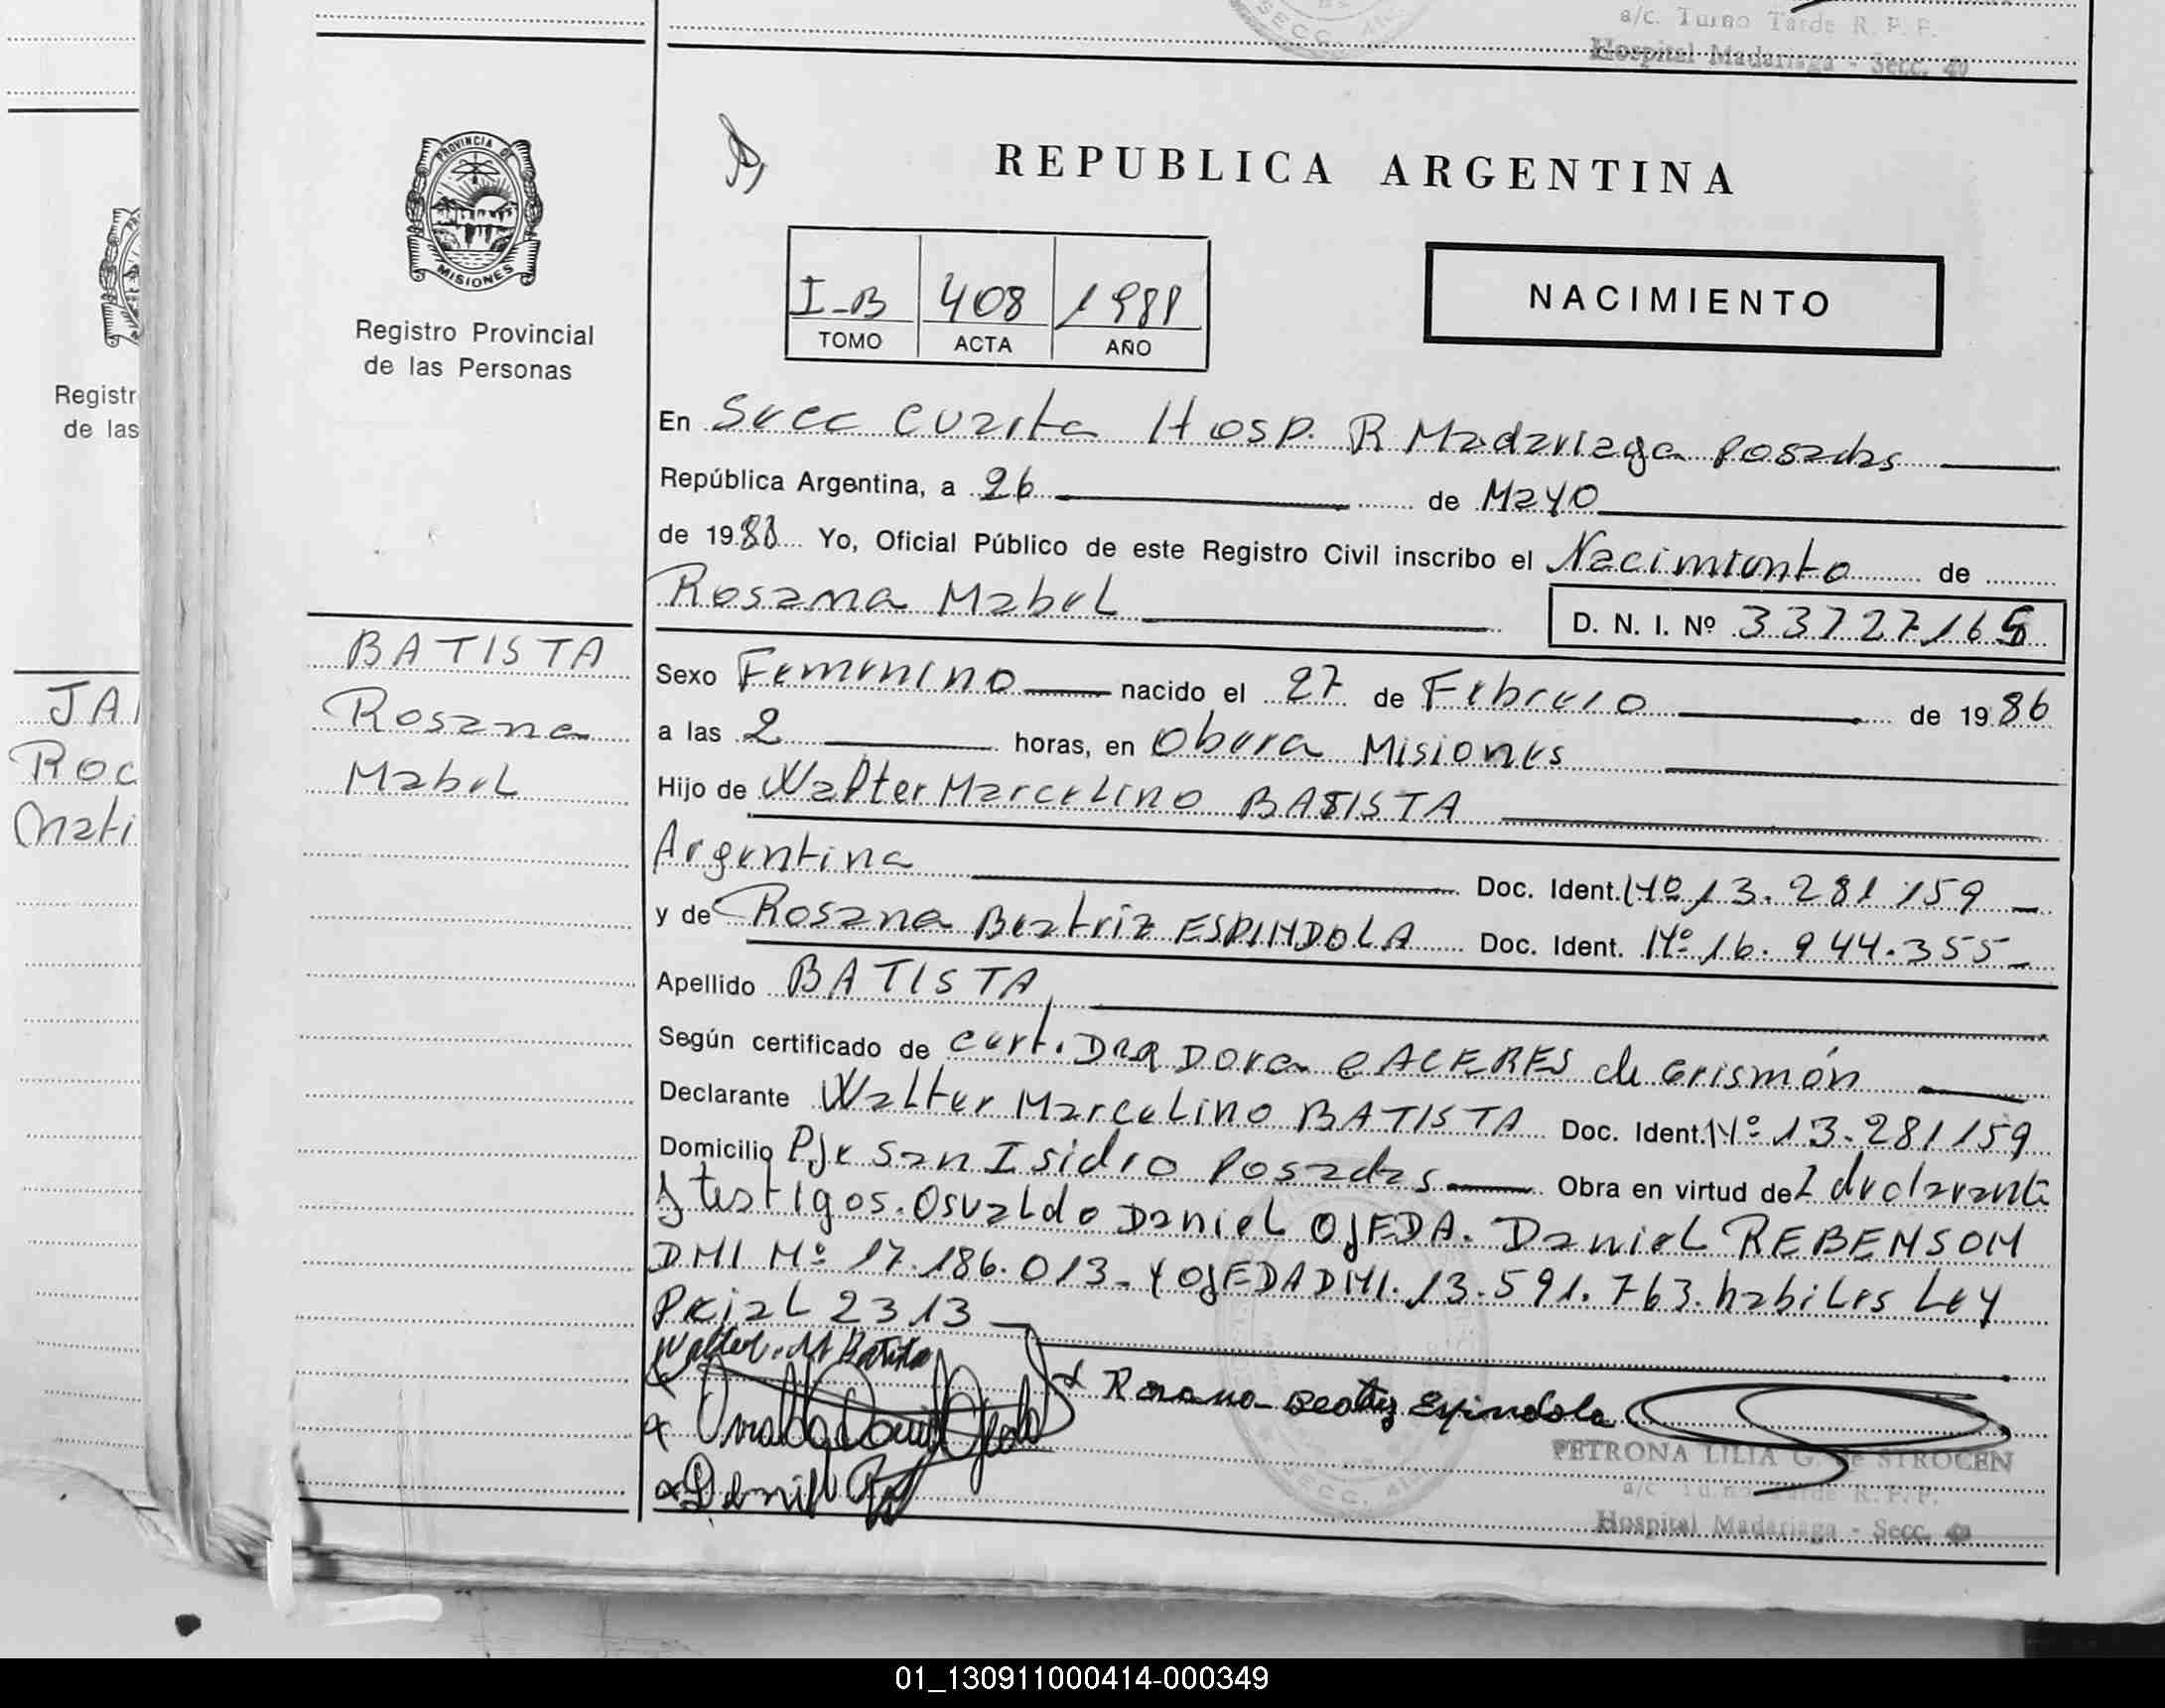 a/c. Turno Tarde R. P. P.
Hospital Madariaga - Secc. 4º
PROVINCIA DE
MISIONES
Registro Provincial
de las Personas
REPUBLICA ARGENTINA
I-B 408 1988
TOMO ACTA AÑO
NACIMIENTO
En Secc cuarta Hosp. R Madariaga Posadas
República Argentina, a 26 de Mayo
de 1988 Yo, Oficial Público de este Registro Civil inscribo el Nacimiento de
Rosana Mabel
D. N. I. Nº 33727165
Sexo Femenino nacido el 27 de Febrero de 1986
a las 2 horas, en Obera Misiones
Hijo de Walter Marcelino BATISTA
Argentina Doc. Ident. Nº 13.281159
y de Rosana Beatriz ESPINDOLA Doc. Ident. Nº 16.944.355
Apellido BATISTA
Según certificado de cert. DRA Dora CACERES de Grismón
Declarante Walter Marcelino BATISTA Doc. Ident. Nº 13.281159
Domicilio Pje San Isidro Posadas Obra en virtud de L declarante
y testigos. Osvaldo Daniel OJEDA. Daniel REBENSON
DNI Nº 17.186.013 - Y OJEDA DNI. 13.591.763. habiles Ley
Pcial 2313
BATISTA
Rosana
Mabel
Walter M Batista
Rosana Beatriz Espindola
Osvaldo Daniel Ojeda
PETRONA LILIA G. de STROCEN
a/c Turno Tarde R. P. P.
Hospital Madariaga - Secc. 4º
Registr
de las
JA
Roc
Mati
01_130911000414-000349